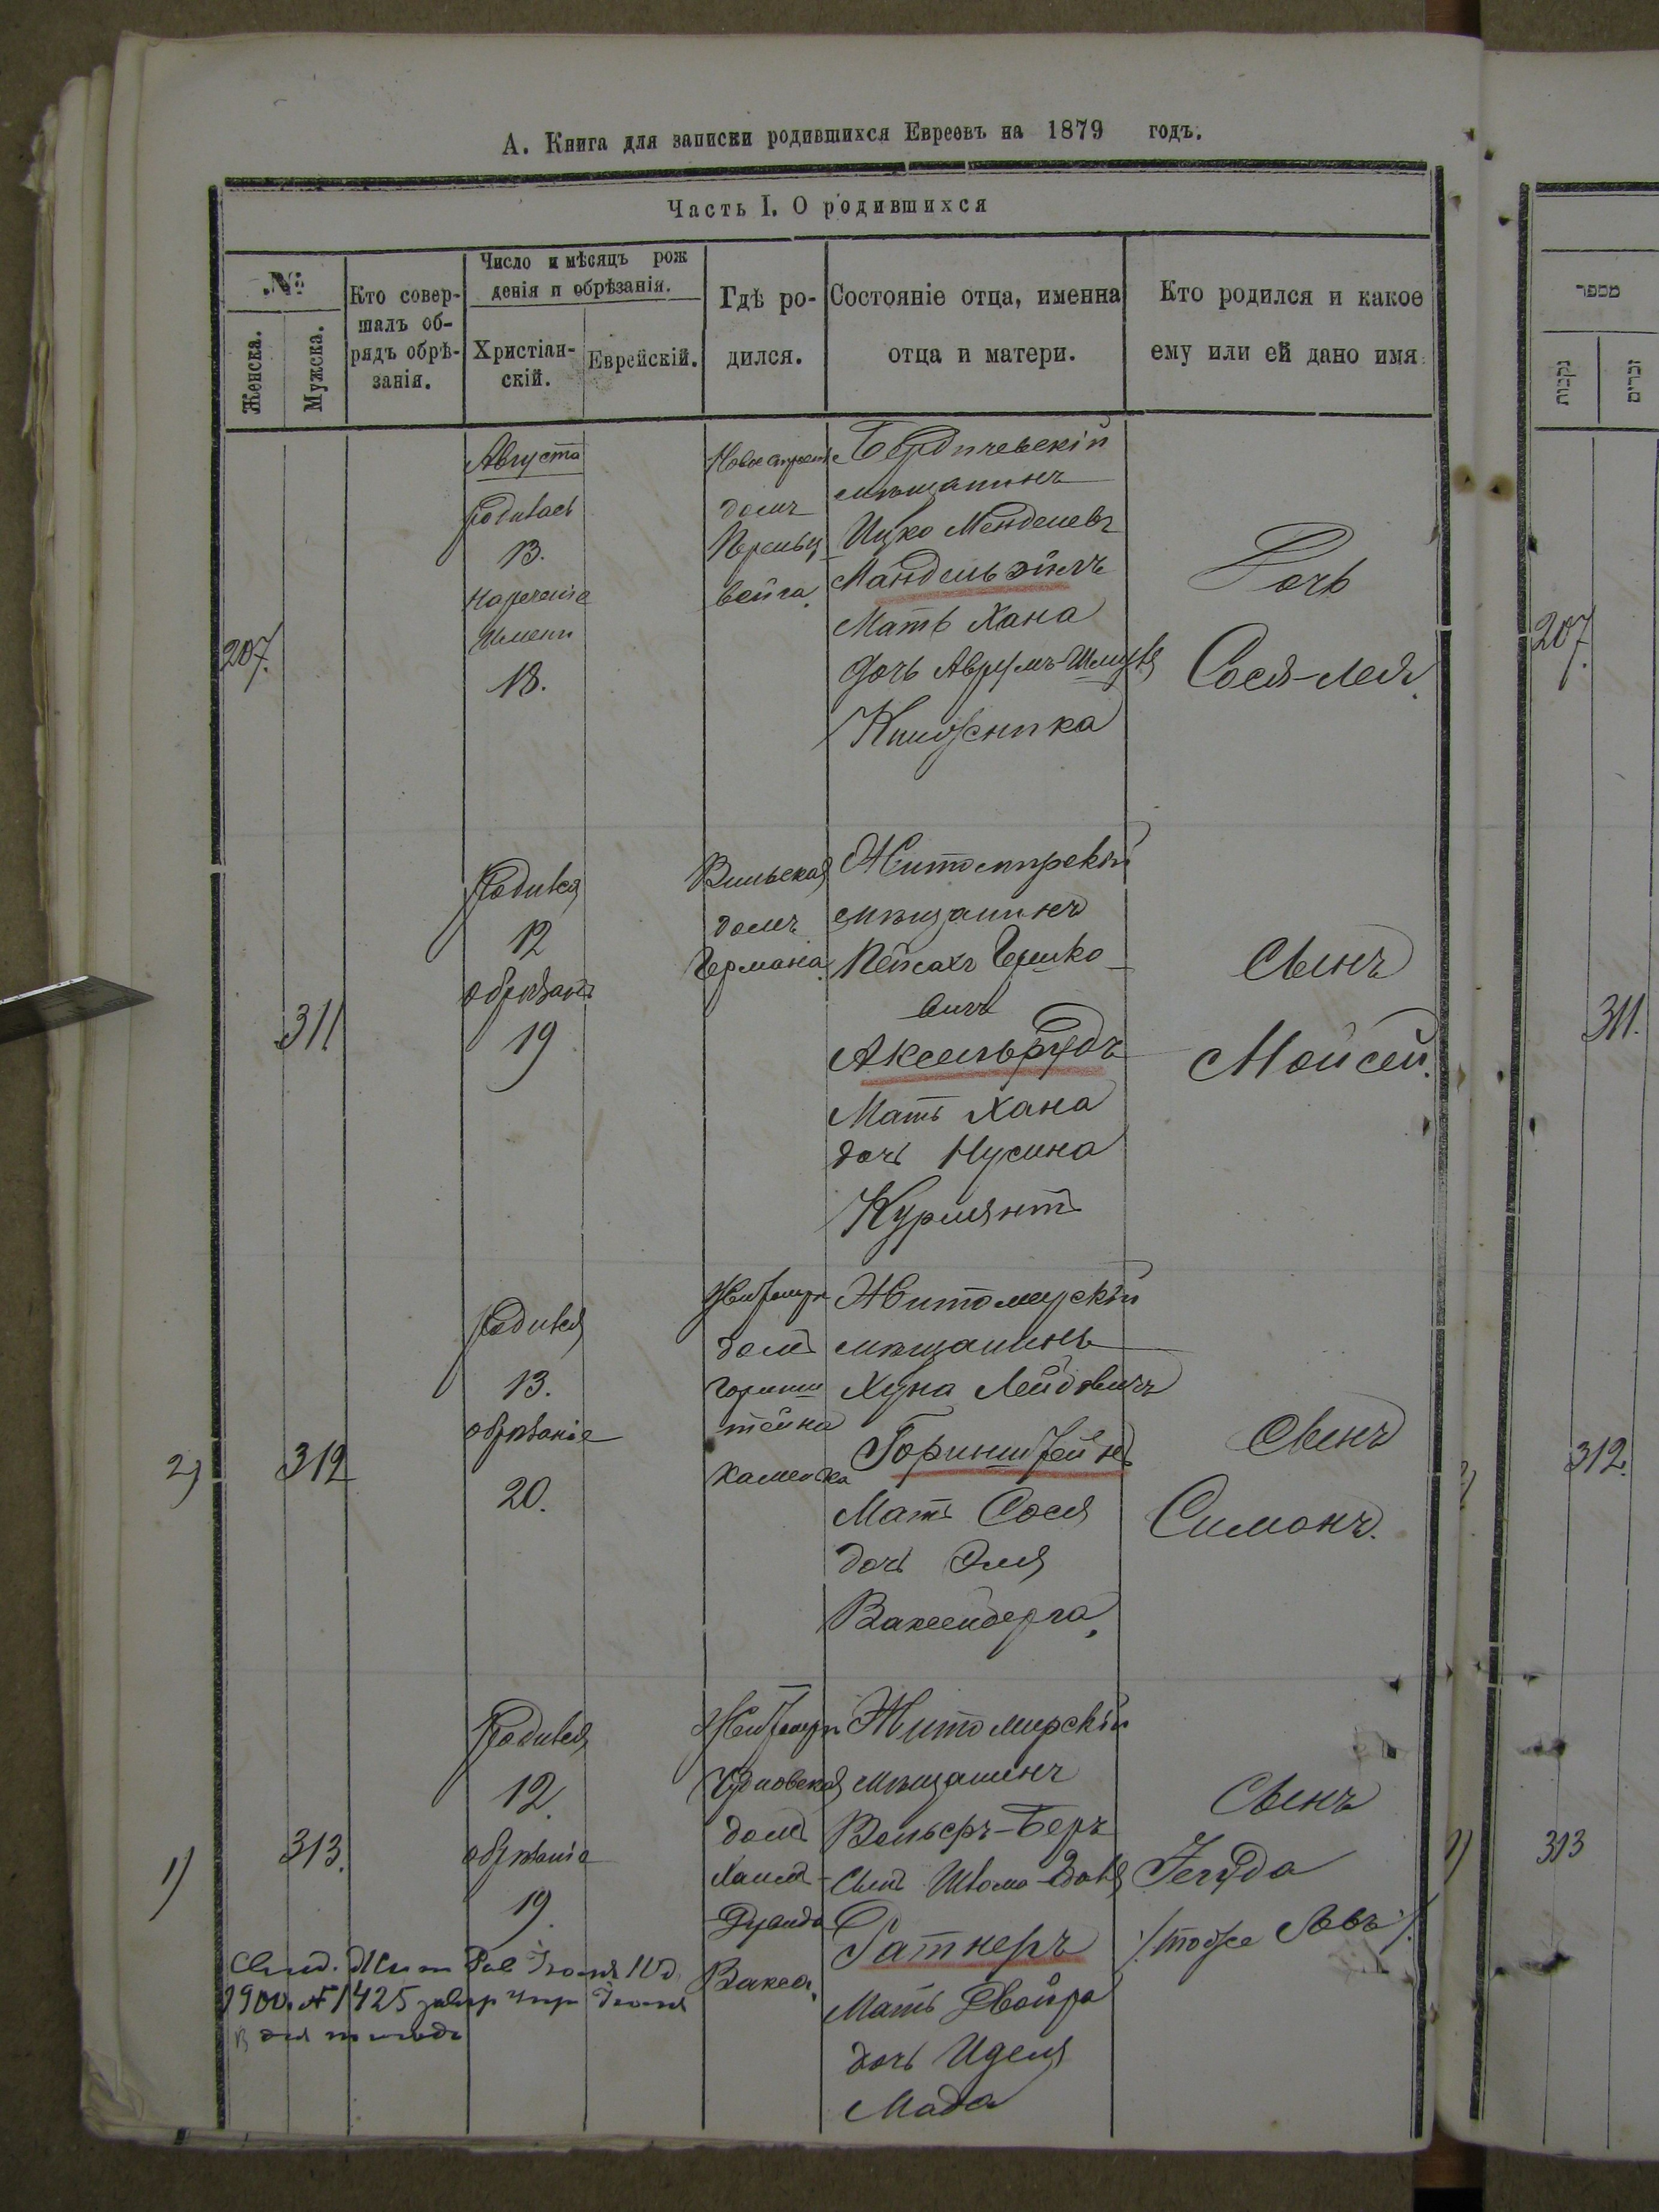 А. Книга для записки родившихся Евреевъ на 1879 годъ.
Часть I. О родившихся
№
Женска.
Мужска.
Кто совер-
шалъ об-
рядъ обрѣ-
занія.
Число и мѣсяцъ рож
денія и обрѣзанія.
Христіан-
скій.
Еврейскій.
Гдѣ ро-
дился.
Состояніе отца, именна
отца и матери.
Кто родился и какое
ему или ей дано имя
207.
Августа
родилась
13.
Нареченіе
имени
18.
домъ
вейга.
Бердичевскій
мѣщанинъ
Ицко Менделевъ
Мандельэйлъ
Мать Хана
дочь Аврумъ-Шмуля
Книжника
Дочь
Сося-Лея.
311
Родился
12
обрѣзанъ
19
Вильская
домъ
Германа
Житомирскій
мѣщанинъ
Пейсахъ Гершко-
вичъ
Аксельрудъ
Мать Хана
дочь Нусина
Курлянтъ
Сынъ
Мойсей.
2)
312
Родился
13.
обрѣзаніе
20.
Житомиръ
домъ
Горинш
тейна
Каменка
Житомирскій
мѣщанинъ
Хуна Лейбовичъ
Горинштейнъ
Мать Сося
дочь Эля
Ваксенберга.
Сынъ
Симонъ.
1)
313.
Родился
12.
обрѣзаніе
19.
Житомиръ
Чудновская
домъ
Хаимъ-
Дувида
Вакса.
Житомирскій
мѣщанинъ
Вольфъ-Беръ
Сынъ Шлома-
Ратнеръ
Мать Двойра
дочь Иделя
Мада
Сынъ
Іегуда
/тоже Левъ/.
1900. № 1425
מספר
נקבות
זכרים
207.
311.
312.
1)
313